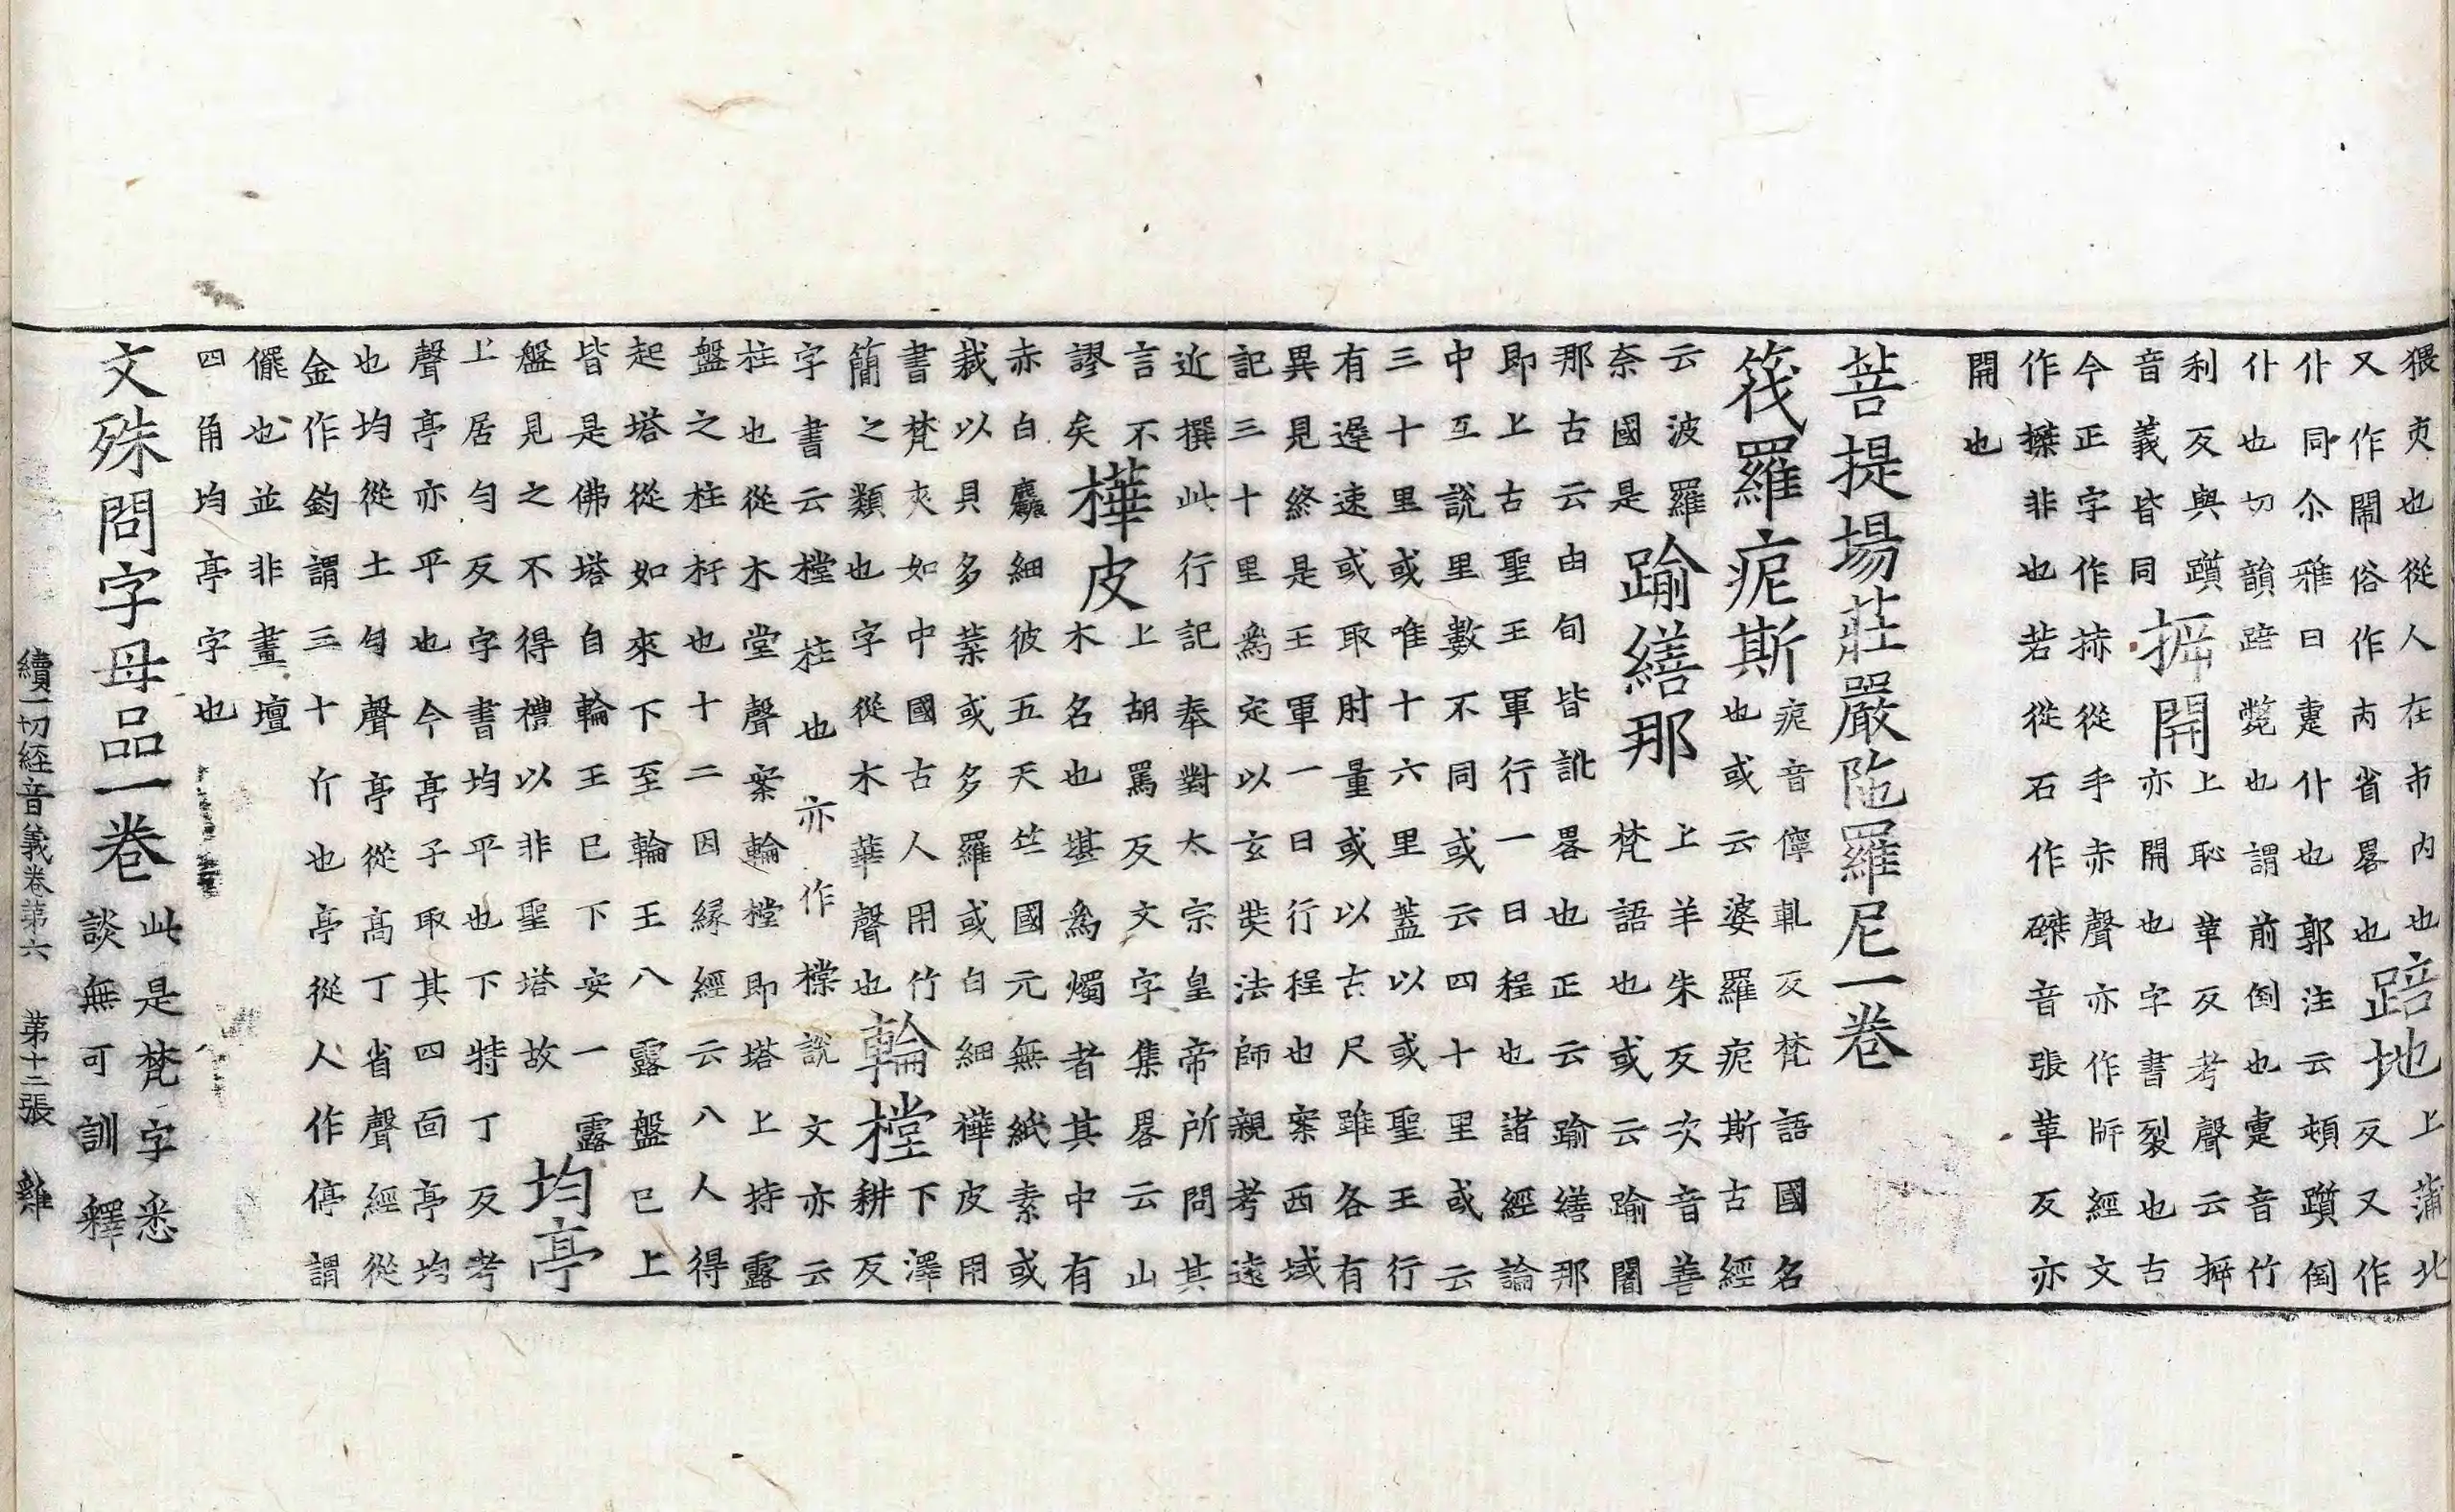 猥𡗜也從人在市內也踣地上蒲北
又作鬧俗作㕯省畧也反又作
仆同尒雅曰疐仆也郭注云頓躓倒
仆也切韻踣斃也謂前倒也疐音竹
利反與躓
音義皆同㧻開上恥革反考聲云㧻
亦開也字書裂也古
今正字作捇從手赤聲亦作㡿經文
作㩒非也若從石作磔音張革反亦
開也
菩提場莊嚴陁羅尼一卷
筏羅痆斯痆音儜軋反梵語國名
也或云婆羅痆斯古經
云波羅
奈國是踰繕那上羊朱反次音善
梵語也或云踰闍
那古云由旬皆訛畧也正云踰繕那
即上古聖王軍行一日程也諸經論
中互說里數不同或云四十里或云
三十里或唯十六里蓋以或聖王行
有遲速或取肘量或以古尺雖各有
異見終是王軍一日行程也案西域
記三十里爲定以玄奘法師親考遠
近撰此行記奉對太宗皇帝所問其
言不
謬矣樺皮上胡罵反文字集畧云山
木名也堪爲燭者其中有
赤白麤細彼五天竺國元無紙素或
裁以貝多葉或多羅或白細樺皮用
書梵夾如中國古人用竹
簡之類也字從木華聲也輪樘下澤
耕反
字書云樘柱也亦作橖說文亦云
柱也從木堂聲案輪樘即塔上持露
盤之柱杅也十二因緣經云八人得
起塔從如來下至輪王八露盤已上
皆是佛塔自輪王已下安一露
盤見之不得禮以非聖塔故均亭
上居勻反字書均平也下特丁反考
聲亭亦平也今亭子取其四面亭均
也均從土勻聲亭從高丁省聲經從
金作鈞謂三十斤也亭從人作停謂
儸也並非畫壇
四角均亭字也
文殊問字母品一卷此是梵字悉
談無可訓釋
續一切經音義卷第六 第十二張 雞